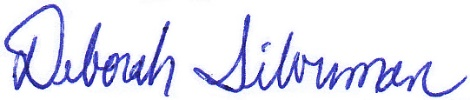 Deborah Silverman